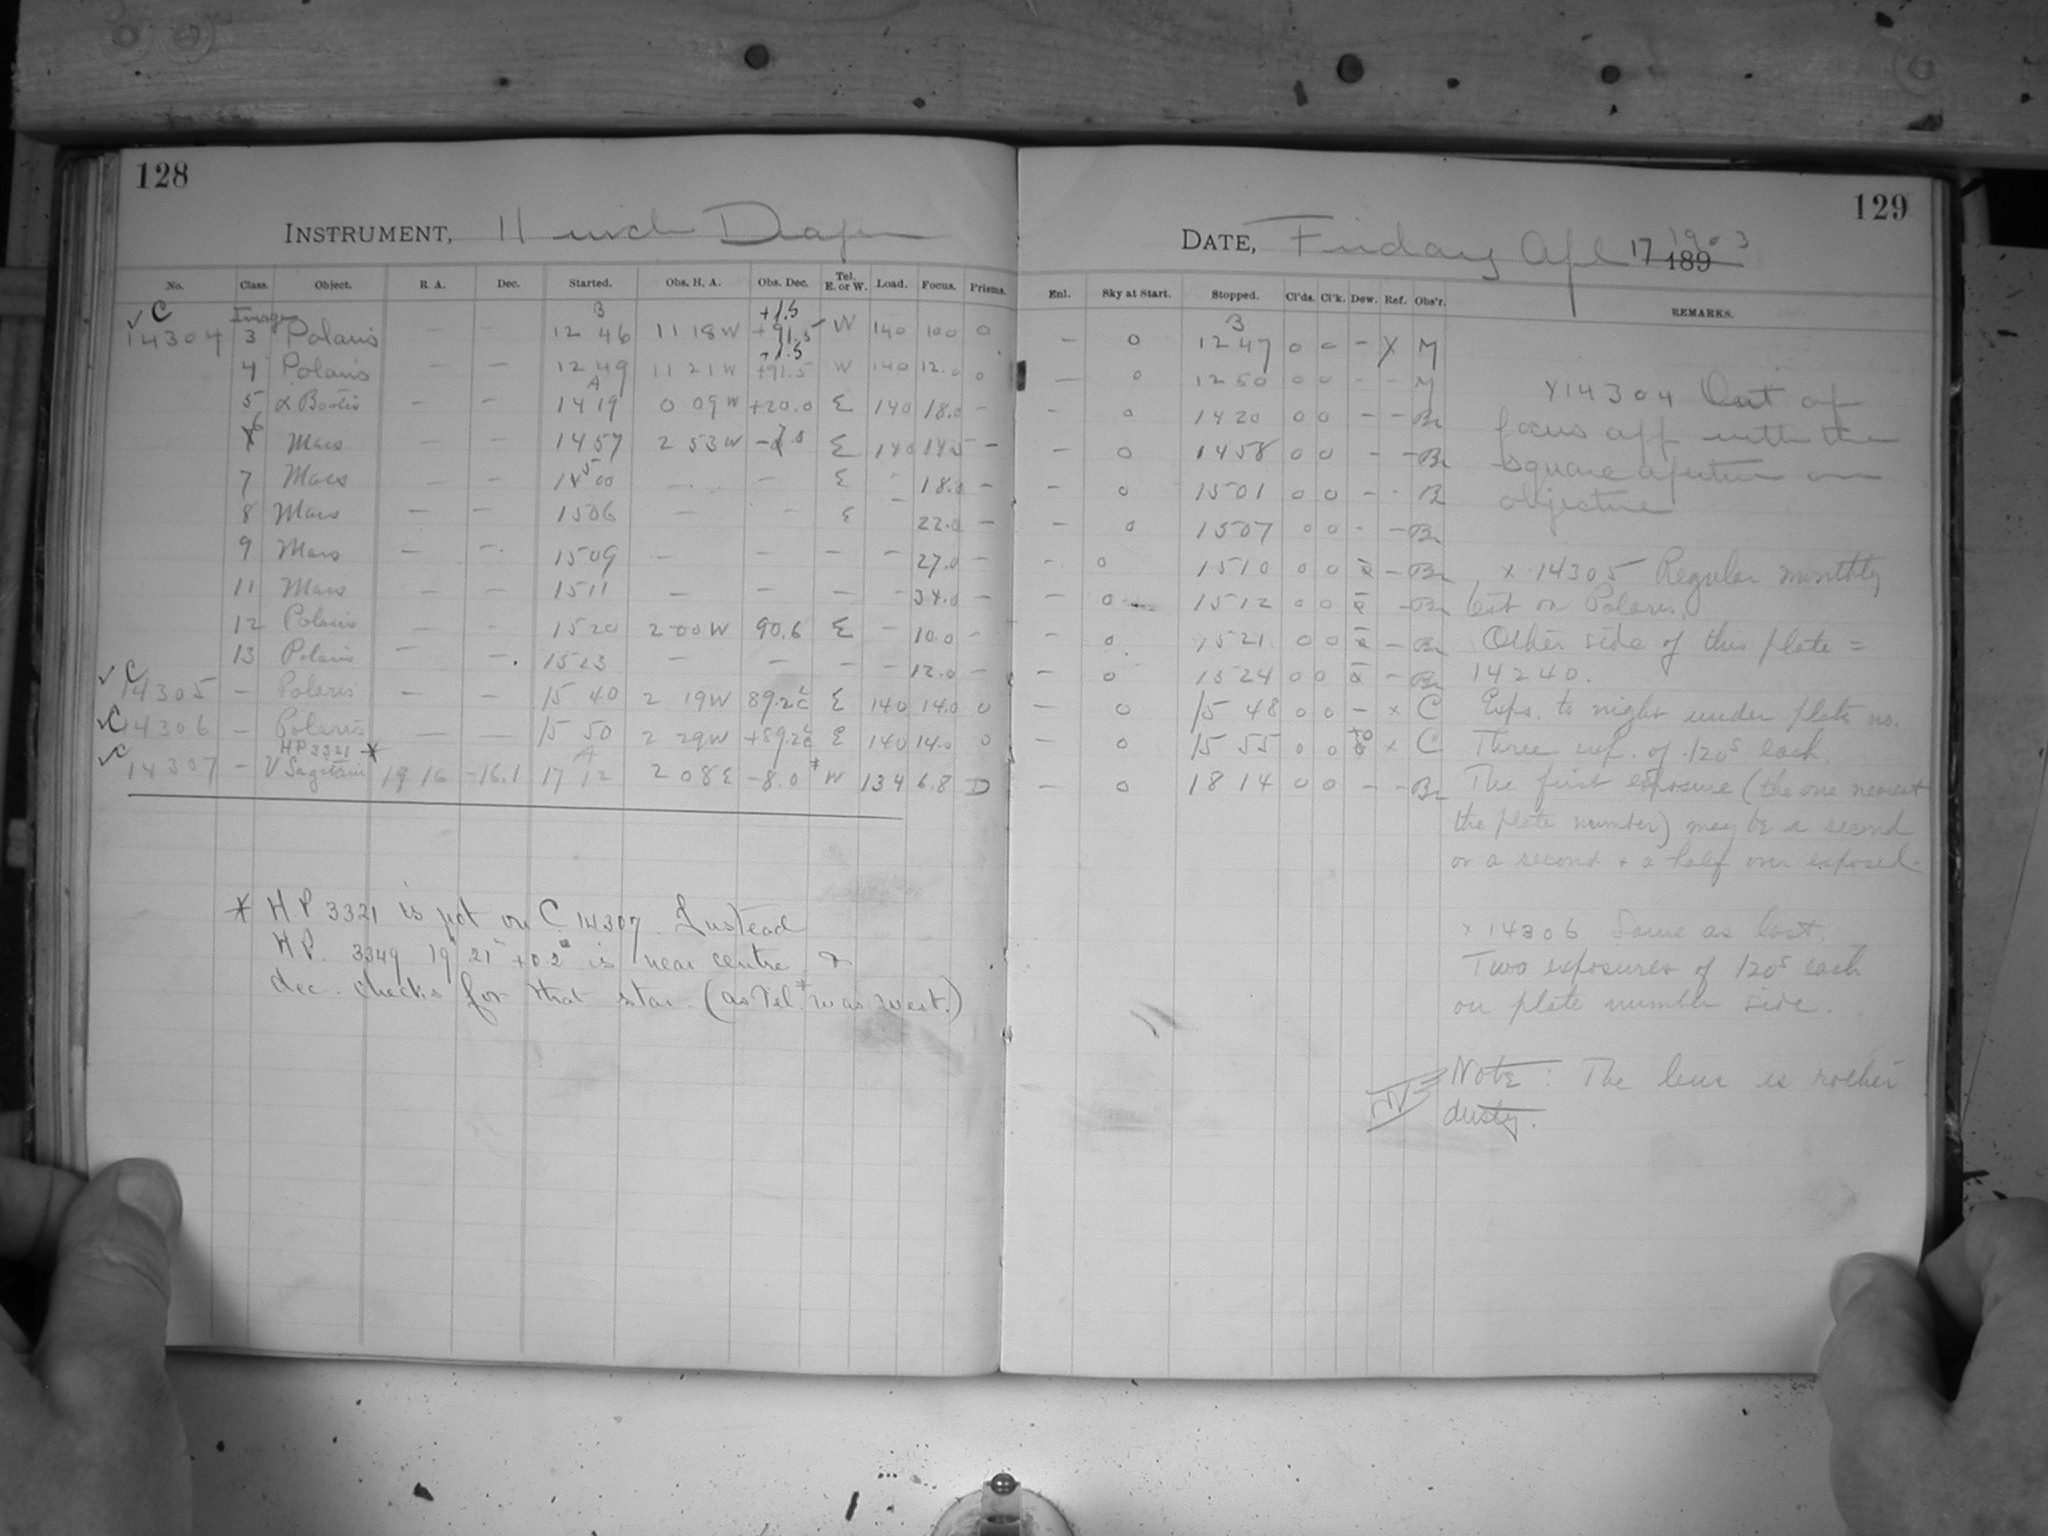 128
INSTRUMENT, 11 inch Draper
No. Class. Object. R. A. Dec. Started. Obs. H. A. Obs. Dec. Tel. E. or W. Load. Focus. Prisms.
C Image B +1.5
✓ 14304 3 Polaris — — 12 46 11 18 W +91.5 W 140 10.0 0
+1.5
4 Polaris — — 12 49 11 21 W +91.5 W 140 12.0 0
A
5 α Bootis — — 14 19 0 09 W +20.0 E 140 18.0 —
6 Mars — — 14 57 2 53 W E 140 14.5 —
7 Mars — — 15 00 — — E - 18.0 —
8 Mars — — 15 06 — - E — 22.0 —
9 Mars — — 15 09 — — — — 27.0 —
11 Mars — — 15 11 — — — — 34.0 —
12 Polaris — - 15 20 2 00 W 90.6 E — 10.0 —
13 Polaris — — 15 23 — — — — 12.0 —
✓ C
14305 — Polaris — — 15 40 2 19 W 89.2 E 140 14.0 0
✓ C 14306 — Polaris — — 15 50 2 29 W +89.2 E 140 14.0 0
✓ C HP 3321 * A
14307 — V Sagitarii 19 16 -16.1 17 12 2 08 E -8.0 * W 134 6.8 D
* H P 3321 is not on C 14307. Instead
H P. 3349 19h 21m +0.2° is near centre &
dec. checks for that star. (as Tel.* was west.)
129
DATE, Friday Apl 17 1903 189
Enl. Sky at Start. Stopped. Cl'ds. Cl'k. Dew. Ref. Obs'r. REMARKS.
B
— 0 12 47 0 0 - X M
— 0 12 50 0 0 - - M
— 0 14 20 0 0 — — Br
— 0 14 58 0 0 - - Br
— 0 15 01 0 0 - - B
— 0 15 07 0 0 - - Br
- 0 15 10 0 0 — Br
— 0 15 12 0 0 — Br
— 0 15 21 0 0 — Br
— 0 15 24 0 0 — Br
— 0 15 48 0 0 — x C
— 0 15 55 0 0 x C
— 0 18 14 0 0 — — Br
X 14304 Out of
focus aff with the
square aperture on
objective
x 14305 Regular monthly
test on Polaris.
Other side of this plate =
14240.
Exps. to night under plate no.
Three exp. of 120s each.
The first exposure (the one nearest
the plate number) may be a second
or a second & a half over exposed.
x 14306 Same as last.
Two exposures of 120s each
on plate number side.
Note: The lens is rather
dusty.